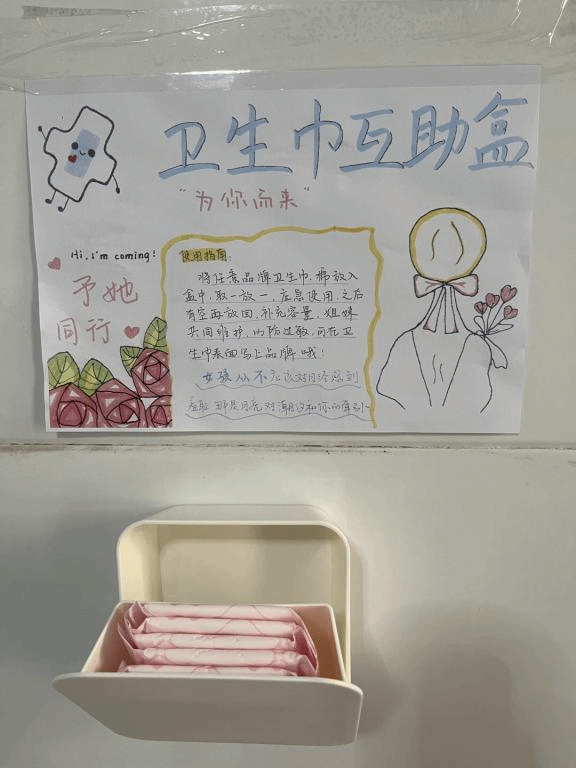 卫生巾互助盒
"为你而来"
Hi,i'm coming!
予她
同行
使用指南:
将任意品牌卫生巾,棉放入
盒中,取一放一,应急使用,之后
有空再放回,补充容量,姐妹
共同维护,以防过敏,可在卫
生巾表面写上品牌哦!
女孩从不应该对月经感到
羞耻 那是月亮对潮汐和你的牵引~